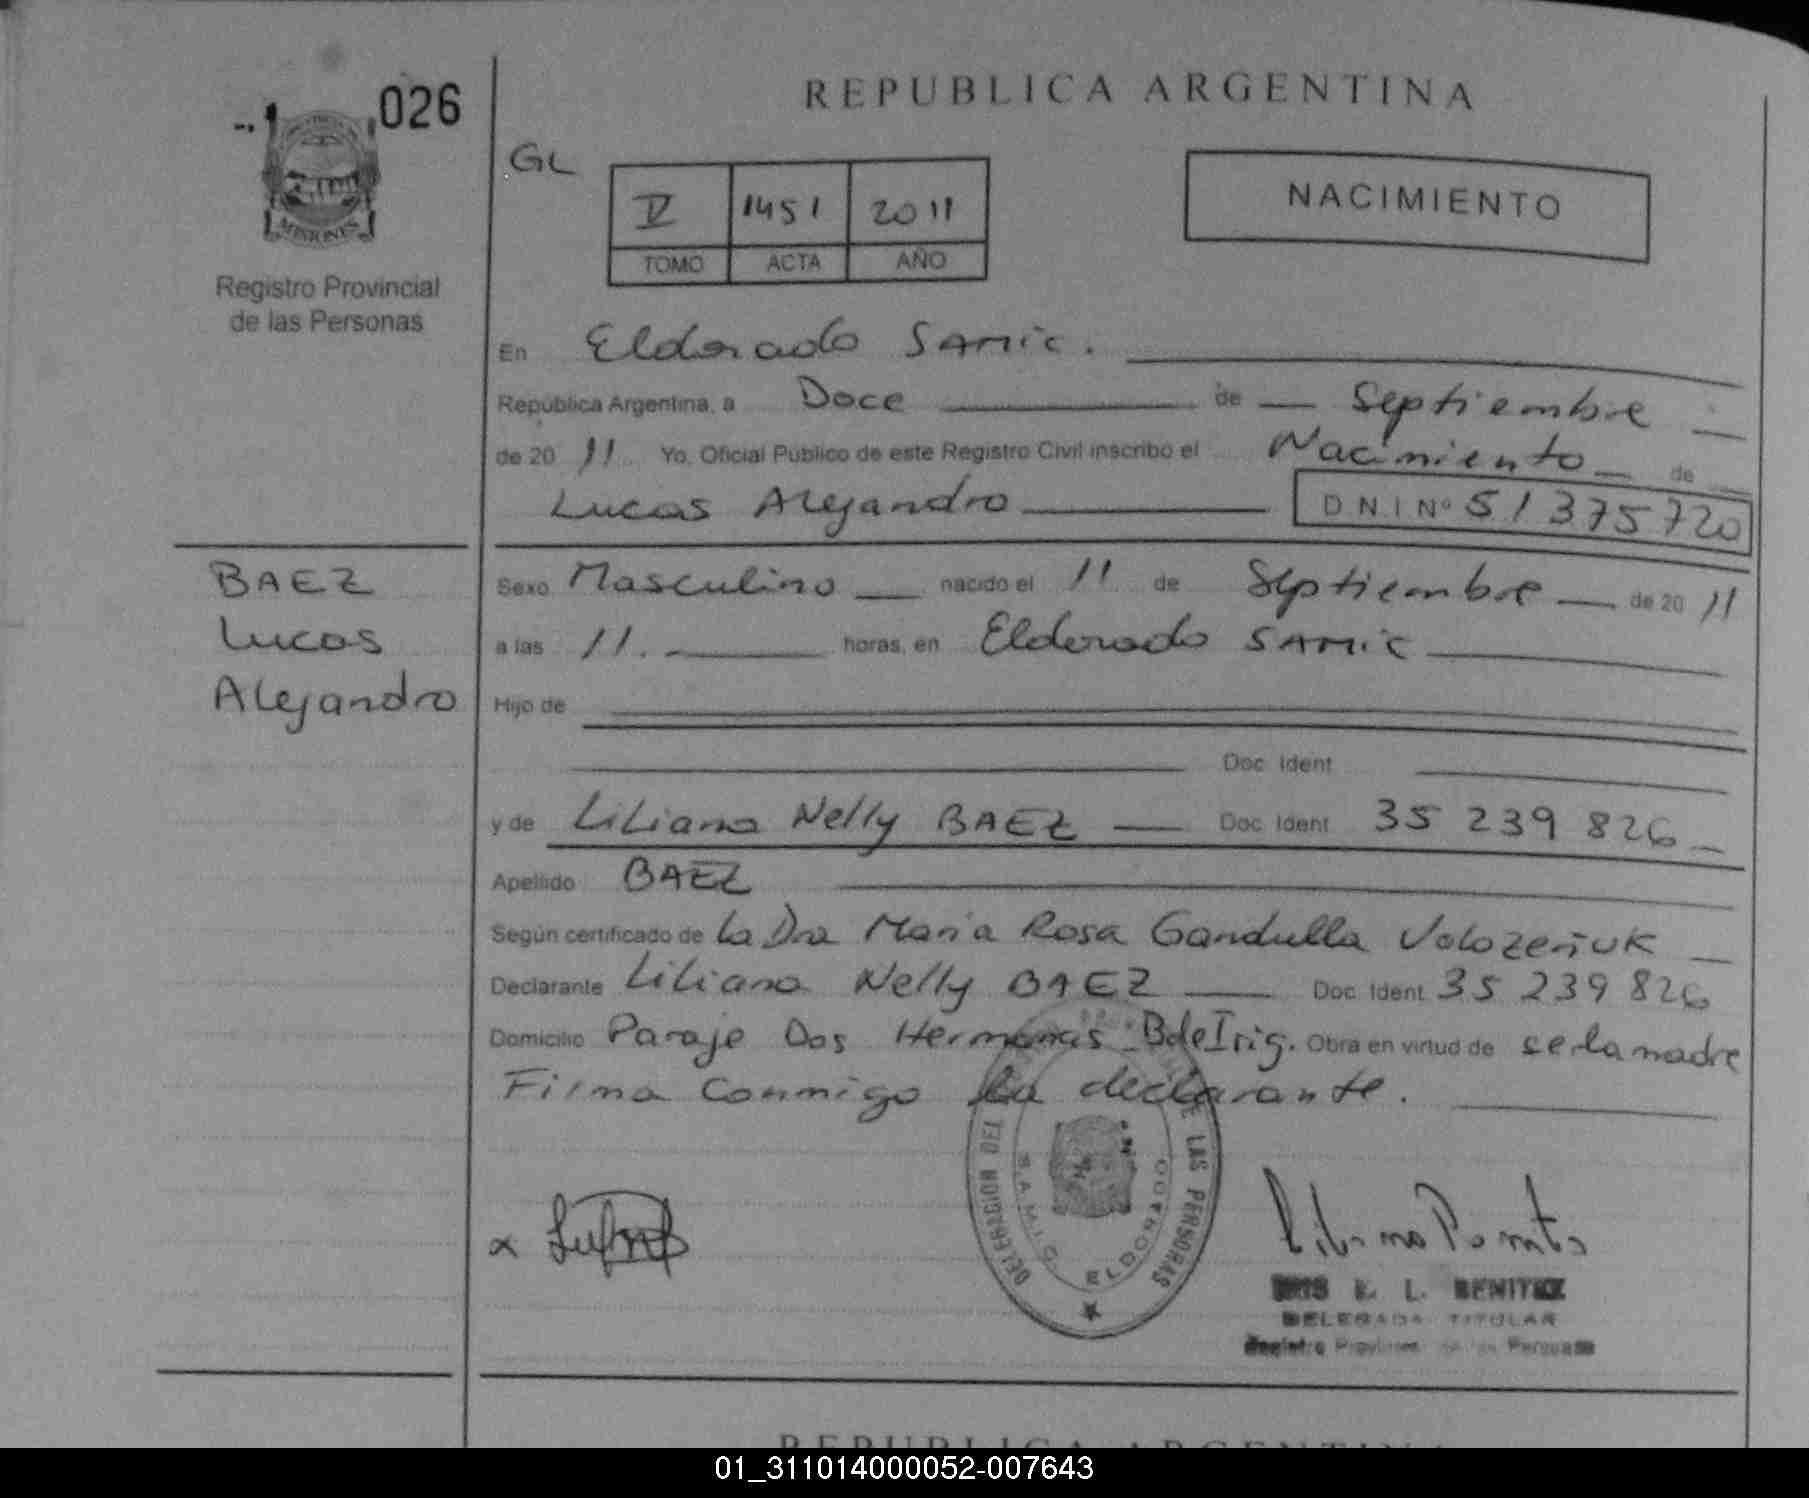 026
MISIONES
Registro Provincial
de las Personas
REPUBLICA ARGENTINA
GL
V 1451 2011
TOMO ACTA AÑO
NACIMIENTO
En Eldorado SAMIC.
República Argentina, a Doce de Septiembre
de 20 11 Yo, Oficial Público de este Registro Civil inscribo el Nacimiento de
Lucas Alejandro D N I Nº 51 375 720
BAEZ
Lucas
Alejandro
Sexo Masculino nacido el 11 de Septiembre de 20 11
a las 11. horas, en Eldorado SAMIC
Hijo de
Doc. Ident.
y de Liliana Nelly BAEZ Doc. Ident. 35 239 826
Apellido BAEZ
Según certificado de la Dra Maria Rosa Gandulla
Declarante Liliana Nelly BAEZ Doc. Ident. 35 239 826
Domicilio Paraje Dos Hermanas BdeIrig. Obra en virtud de ser la madre
Firma Conmigo la declarante.
DELEGACION DEL LAS PERSONAS
S.A.M.I.C. ELDORADO
E. L. BENITEZ
DELEGADA TITULAR
Registro
REPUBLICA ARGENTINA
01_311014000052-007643